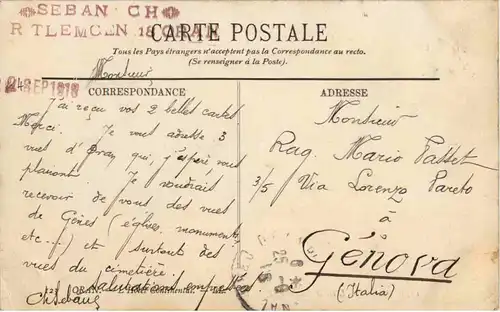 SEBAN CH
R TLEMCEN 18 ORAN
CARTE POSTALE
Tous les Pays étrangers n'acceptent pas la Correspondance au recto.
(Se renseigner à la Poste).
24 SEP 1918
Monsieur
CORRESPONDANCE
J'ai reçu vos 2 belles cartes
Merci. Je vous adresse 3
vues d'Oran qui, j'espère vous
plairont. Je voudrais
recevoir de vous des vues
de Gênes (églises, monuments,
etc...) et surtout des
vues du cimetière.
salutations empressées
ORAN. - L'Hôtel Continental. - LL.
ADRESSE
Monsieur
Rag. Mario
3/5 Via Lorenzo Pareto
à
Génova
(Italia)